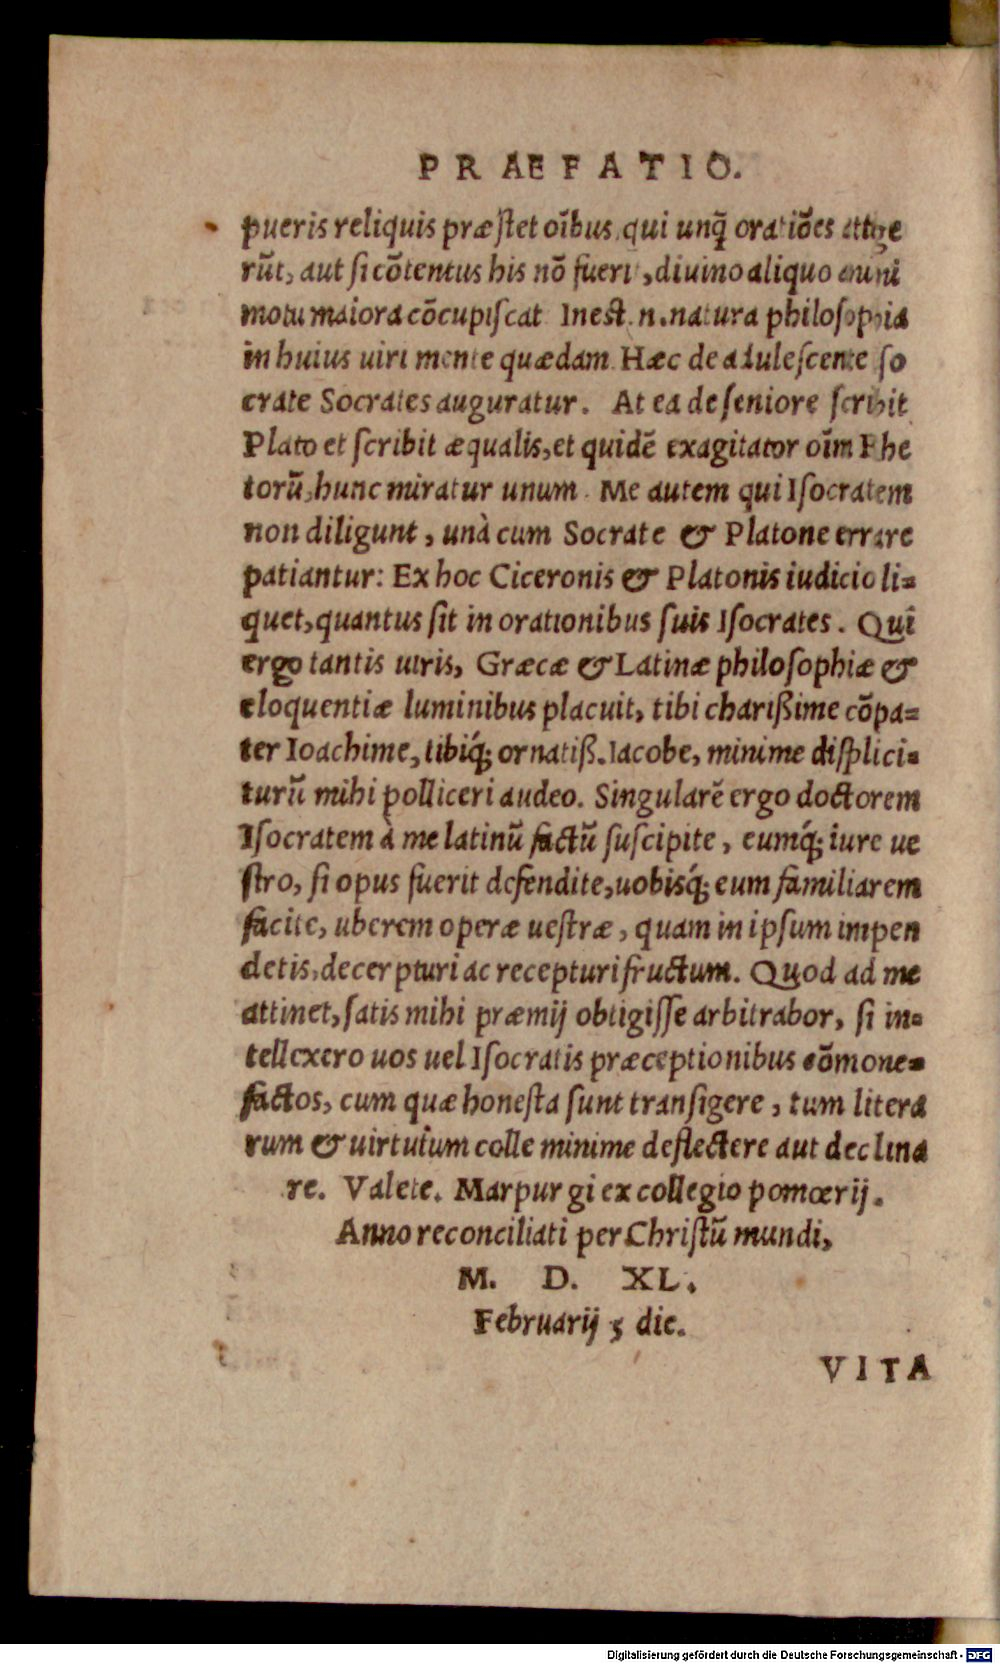 PRAEFATIO.
pueris reliquis præstet oı̃bus, qui unq̃ oratiões attige
rũt, aut si cõtentus his nõ fuerit, diuino aliquo animi
motu maiora cõcupiscat. Inest .n. natura philosophia
in huius uiri mente quædam. Hæc de adulescente so
crate Socrates auguratur. At ea de seniore scribit
Plato et scribit æqualis, et quidẽ exagitator oı̃m Rhe
torũ, hunc miratur unum. Me autem qui Isocratem
non diligunt, unà cum Socrate & Platone errare
patiantur: Ex hoc Ciceronis & Platonis iudicio li=
quet, quantus sit in orationibus suis Isocrates. Qui
ergo tantis uiris, Græcæ & Latinæ philosophiæ &
eloquentiæ luminibus placuit, tibi charißime cõpa=
ter Ioachime, tibiq́; ornatiß. Iacobe, minime displici=
turũ mihi polliceri audeo. Singularẽ ergo doctorem
Isocratem à me latinũ factũ suscipite, eumq́; iure ue
stro, si opus fuerit defendite, uobisq́; eum familiarem
facite, uberem operæ uestræ, quam in ipsum impen
detis, decerpturi ac recepturi fructum. Quod ad me
attinet, satis mihi præmij obtigisse arbitrabor, si in=
tellexero uos uel Isocratis præceptionibus cõmone=
factos, cum quæ honesta sunt transigere, tum litera
rum & uirtutum colle minime deflectere aut declina
re. Valete. Marpurgi ex collegio pomœrij.
Anno reconciliati per Christũ mundi,
M. D. XL.
Februarij 5 die.
VITA
Digitalisierung gefördert durch die Deutsche Forschungsgemeinschaft - DFG